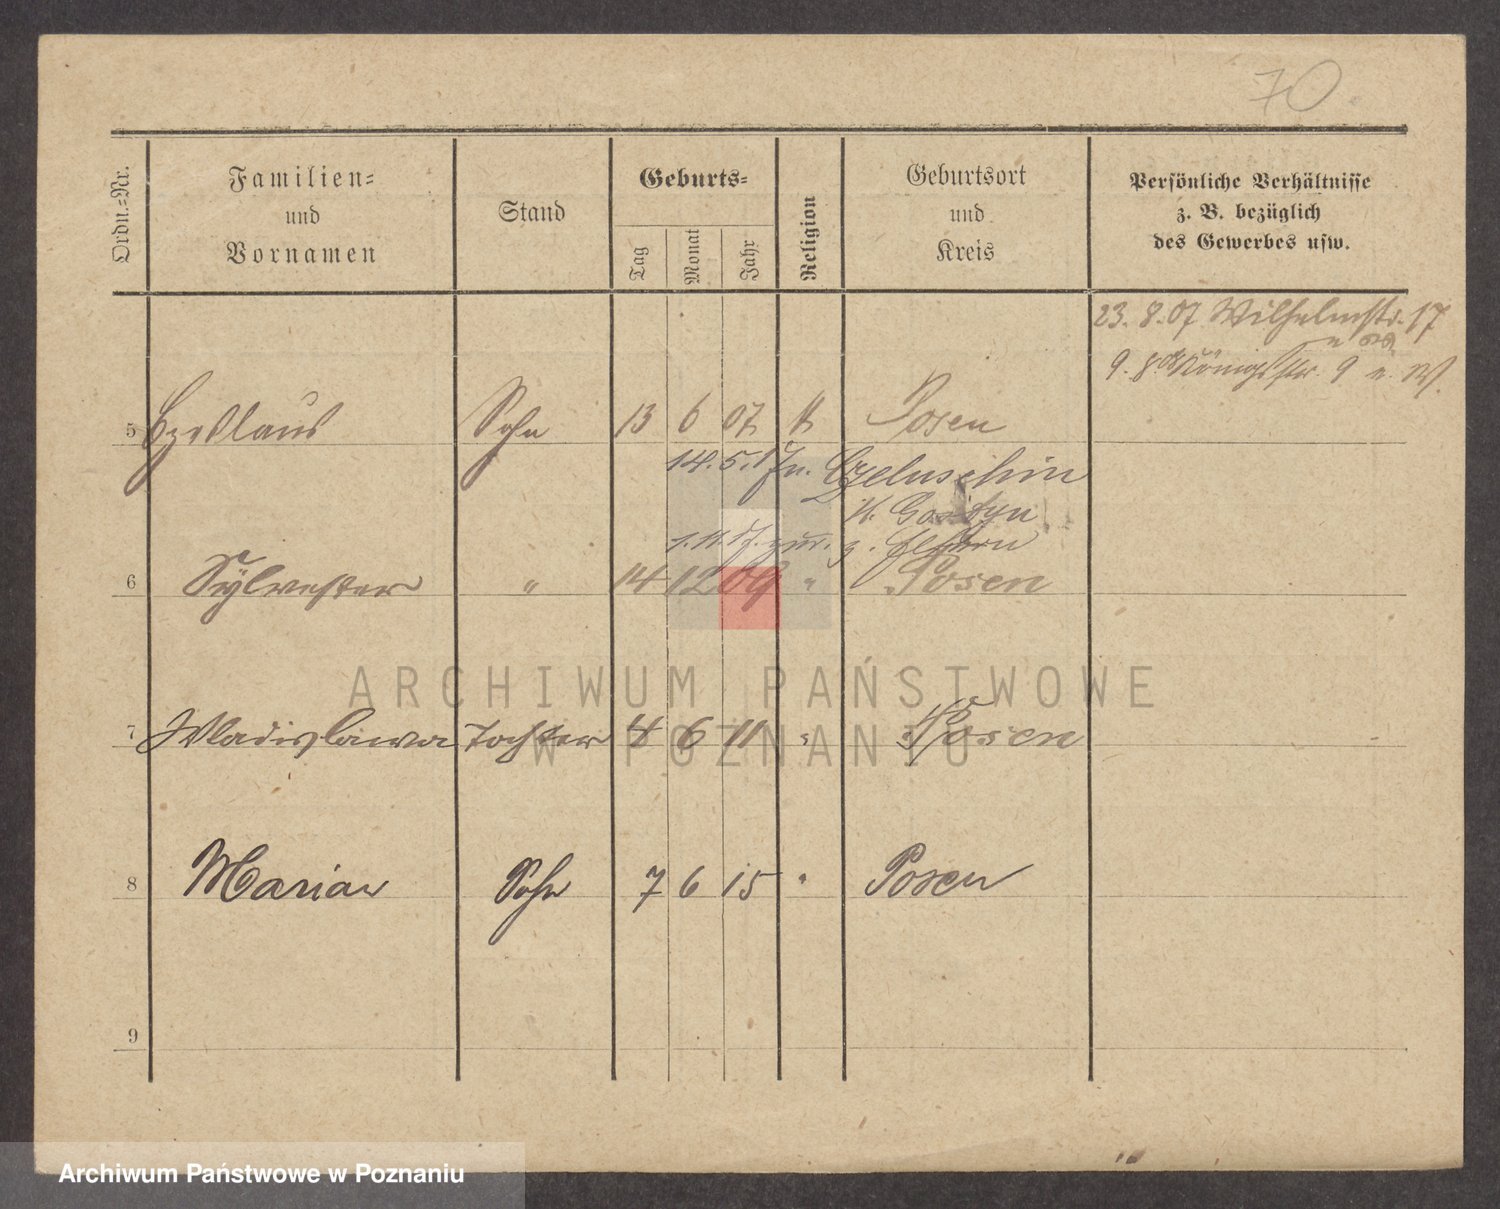 70
Ordn.-Nr.
Familien-
und
Vornamen
Stand
Geburts-
Tag
Monat
Jahr
Religion
Geburtsort
und
Kreis
Persönliche Verhältnisse
z. B. bezüglich
des Gewerbes usw.
23. 8. 07 Wilhelmstr. 17
9. 8. Königstr. 9 n. W.
5 Sohn 13 6 07 k Posen
14. 5. 17 n. Czeluschin
K. Gostyn
1. 11. 17. zur. z. Eltern
6 Sylvester " 14 12 09 " Posen
7 Wladislawa Tochter 4 6 11 " Posen
8 Marian Sohn 7 6 15 " Posen
9
ARCHIWUM PAŃSTWOWE
W POZNANIU
Archiwum Państwowe w Poznaniu